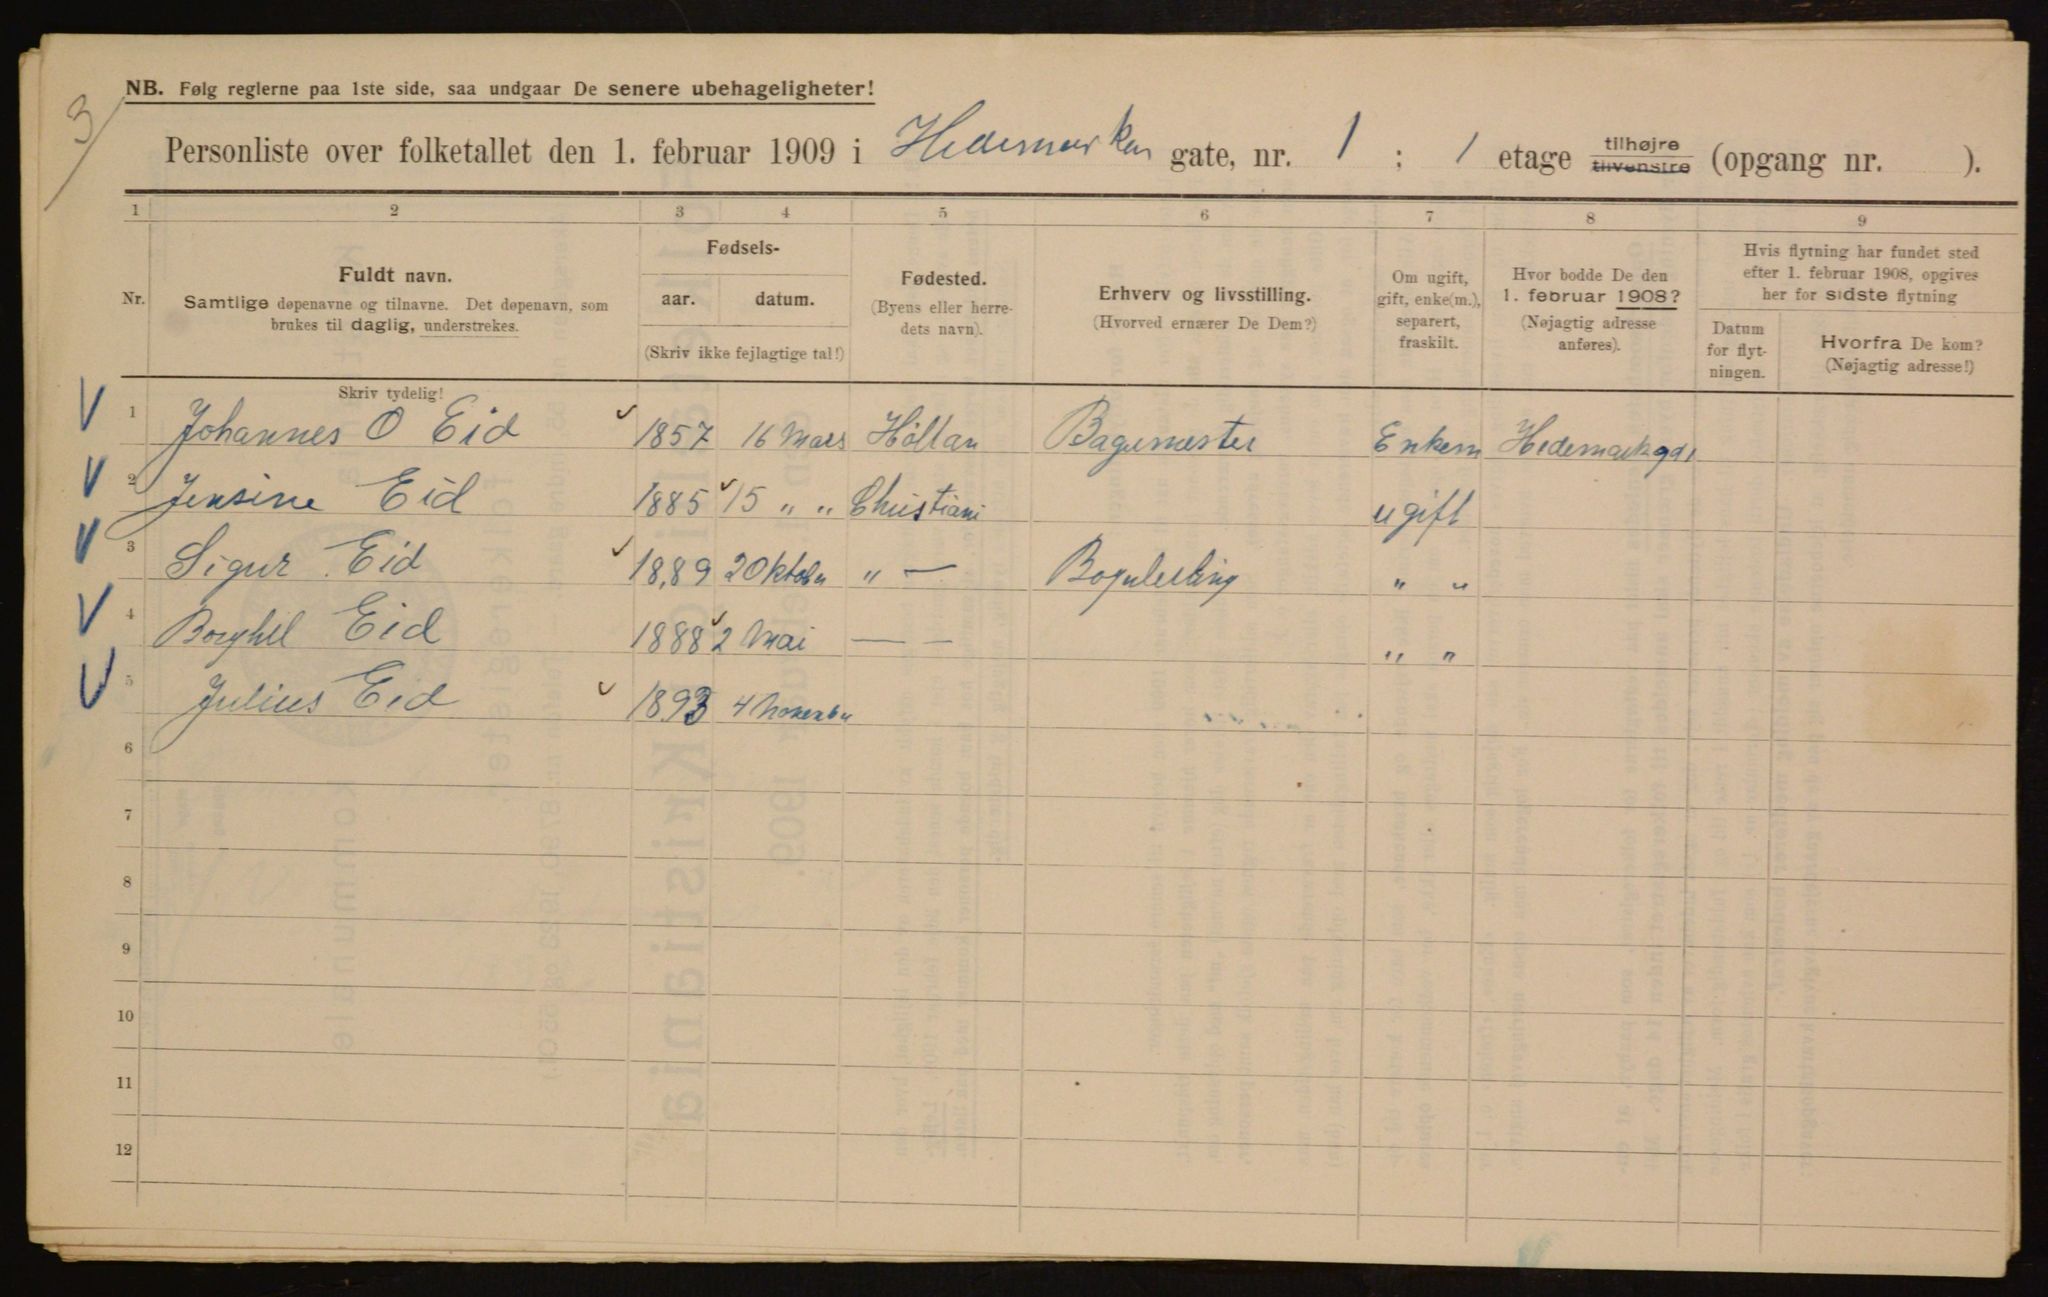 3
NB. Følg reglerne paa 1ste side, saa undgaar De senere ubehageligheter!
Personliste over folketallet den 1. februar 1909 i Hedemarken gate, nr. 1 ; 1 etage tilhøjre tilvenstre (opgang nr. ).
1 2 3 4 5 6 7 8 9
Nr.
Fuldt navn.
Samtlige døpenavne og tilnavne. Det døpenavn, som
brukes til daglig, understrekes.
Fødsels-
aar. datum.
(Skriv ikke fejlagtige tal!)
Fødested.
(Byens eller herre-
dets navn).
Erhverv og livsstilling.
(Hvorved ernærer De Dem?)
Om ugift,
gift, enke(m.),
separert,
fraskilt.
Hvor bodde De den
1. februar 1908?
(Nøjagtig adresse
anføres).
Hvis flytning har fundet sted
efter 1. februar 1908, opgives
her for sidste flytning
Datum
for flyt-
ningen.
Hvorfra De kom?
(Nøjagtig adresse!)
Skriv tydelig!
1 Johannes O Eid 1857 16 Mars Høltan Bagemester Enkem Hedemarkgd 1
2 Jensine Eid 1885 15 " " Christiani ugift
3 Sigur Eid 1889 2 Oktober " —  " "
4 Borghil Eid 1888 2 Mai — — " "
5 Julius Eid 1893 4 November
6
7
8
9
10
11
12